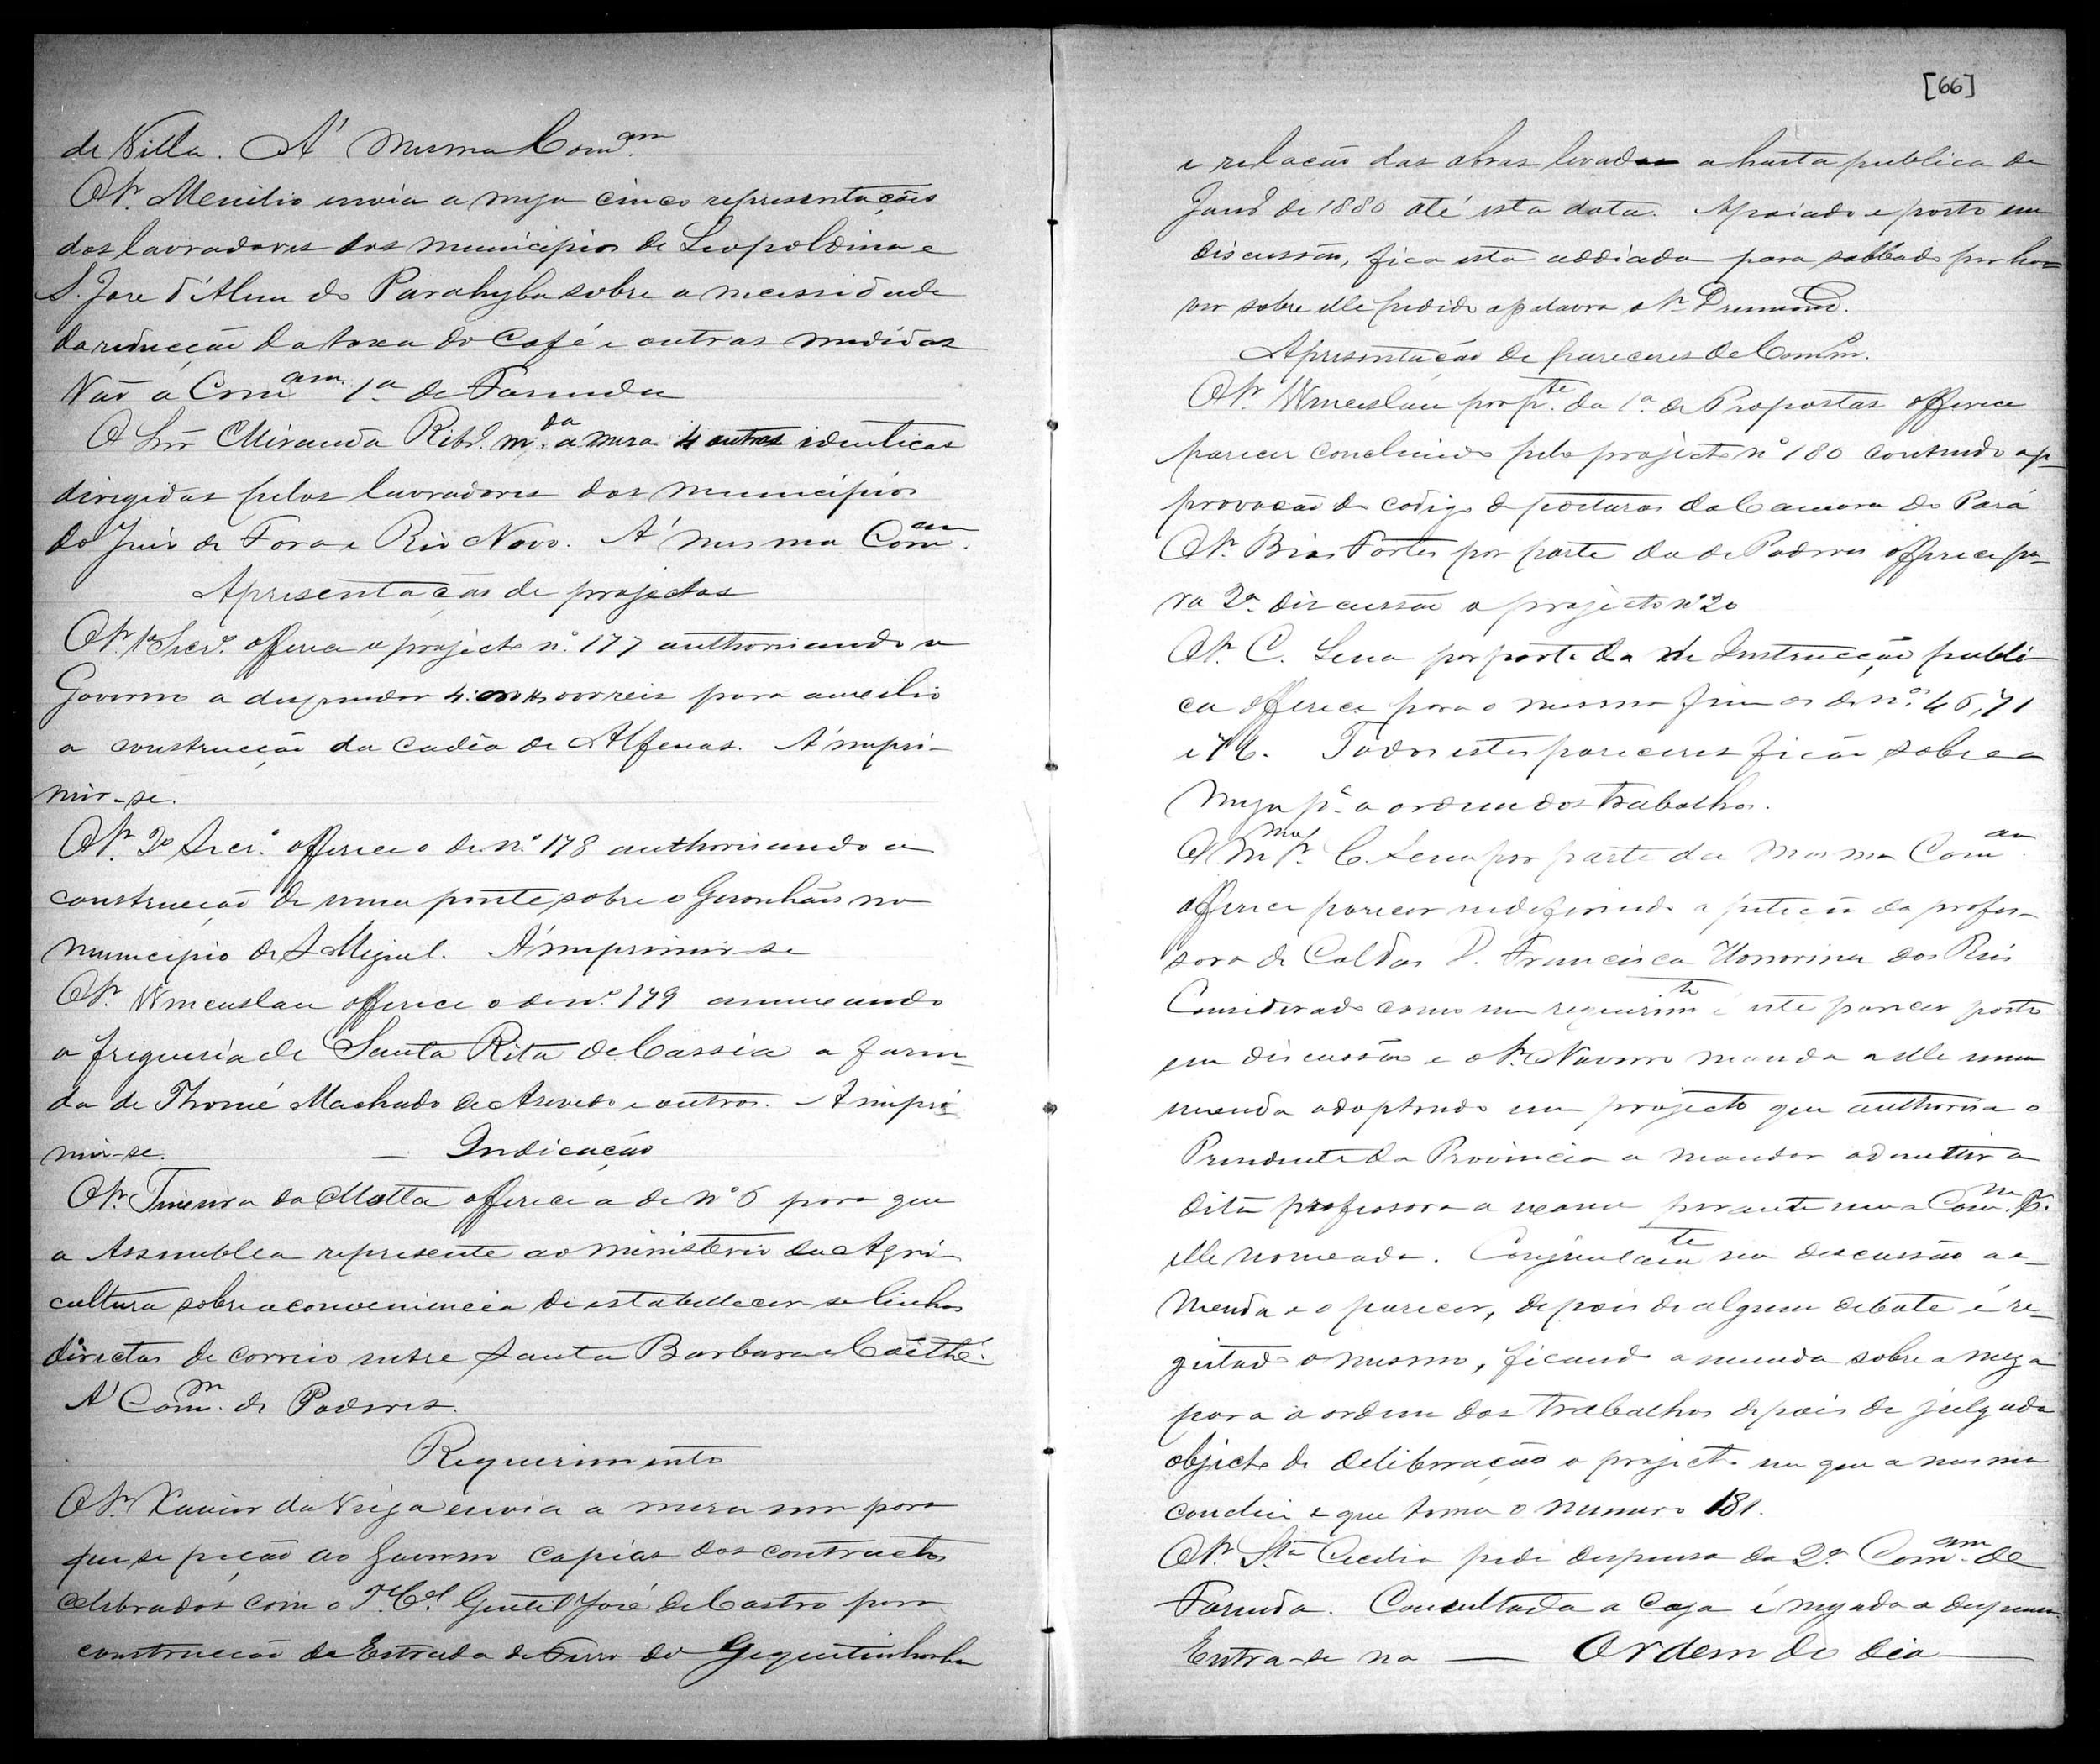 de Villa. A' mesma Com.am
O Sr. Menilio envia a meza cinco representações
dos lavradores dos municipios de Leopoldina e
S. Jose d'Alem do Parahyba sobre a necessidade
da reducção da taxa do Café e outras medidas
Vão a Com.am 1ª de Fasenda
O Snr Miranda Ribr.º m.da a mesa 4 outras identicas
dirigidas pelos lavradores dos municipios
do Juis de Fora e Rio Novo. A' mesma Com.am
Apresentação de projectos
O Sr. 1º Secr.º offerece o projecto n.º 177 authorisando o
Governo a despender 4:000$000 reis para auxilio
a construcção da cadêa de Alfenas. A' impri-
mir-se.
O Sr. 2º Secr.º offerece o de n.º 178 authorisando a
construcção de uma ponte sobre o Guanhães no
municipio de S Miguel. A' imprimir-se
O Sr. Wenceslau offerece o de n.º 179 annexando
a freguesia de Santa Rita de Cassia a fasen-
da de Thomé Machado de Asevedo e outros. A impri
mir-se. — Indicação
O Sr. Teixeira da Motta offerece a de nº 6 para que
a Assemblea represente ao ministerio da Agri-
cultura sobre a conveniencia de estabellecer-se linhas
directas de correio entre Santa Barbara e Caéthé.
A' Com.m de Poderes.
Requerimento
O Sr. Xavier da Veiga envia a mesa um para
que se peção ao Governo copias dos contractos
celebrados com o T.e C.el Gentil José de Castro para
construcção da Estrada de Ferro do Gequitinhonha
[66]
e relação das obras levadas a hasta publica de
Janr.º de 1880 até esta data. Apoiado e posto em
discussão, fica esta addiada para sabbado por ha-
ver sobre elle pedido a palavra o Sr. Drumond.
Apresentação de pareceres de Comm.
O Sr. Wenceslau por p.te da 1ª de Propostas offerece
parecer concluindo pelo projecto nº 180 contendo ap-
provação do codigo de posturas da Camara do Pará
O Sr. Bias Fortes por parte da de Poderes offerece pa-
ra 2ª discussão o projecto nº 20
O Sr. C. Sena por parte da de Instrucção publi-
ca offerece para o mesmo fim os de n.os 46, 71
e 76. Todos estes pareceres ficão sobre a
meza p.ª a ordem dos trabalhos.
O mesmo Sr. C. Sena por parte da mesma Com.am
offerece parecer indeferindo a petição da profes-
sora de Caldas D. Francisca Honorina dos Reis
Considerado como um requerim.to é este parecer posto
em discussão e o Sr. Navarro manda a elle uma
emenda adoptando um projecto que authorisa o
Presidente da Provincia a mandar admittir a
dita professora a exame perante uma Com.m p.r
elle nomeada. Conjunctam.te em discussão a e-
menda e o parecer, depois de algum debate é re-
geitado o mesmo, ficando a emenda sobre a meza
para a ordem dos trabalhos depois de julgado
objecto de deliberação o projecto em que a mesma
conclui e que toma o numero 181.
O Sr. S.ta Cecilia pede dispensa da 2ª Com.am de
Fasenda. Consultada a Casa é negada a dispensa
Entra-se na — Ordem do dia —